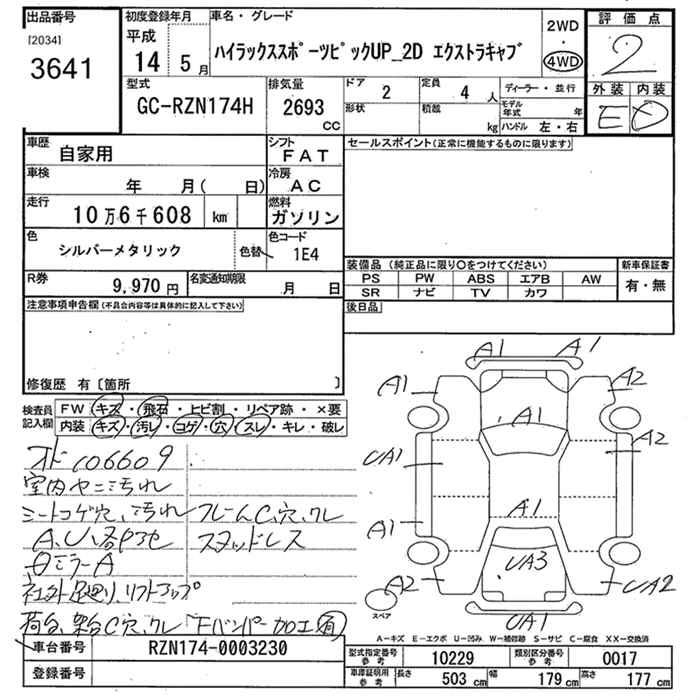 出品番号
[2034]
3641
初度登録年月
平成
14 5月
車名・グレード
ハイラックススポーツピックUP_2D エクストラキャブ
2WD
・
4WD
評価点
2
外装 内装
E D
型式
GC-RZN174H
排気量
2693
CC
ドア
2
形状
定員
4 人
積載
kg
ディーラー・並行
モデル年式 年
ハンドル 左・右
車歴
自家用
シフト
FAT
車検
年 月( 日)
冷房
AC
走行
10万6千608 km
燃料
ガソリン
色
シルバーメタリック
色替
色コード
1E4
R券
9,970円
名変通知期限
月 日
セールスポイント(正常に機能するものに限ります)
装備品(純正品に限り○をつけてください)
PS PW ABS エアB AW
SR ナビ TV カワ
新車保証書
有・無
後日品
注意事項申告欄(不具合内容等は具体的に記入して下さい)
修復歴 有〔箇所 〕
検査員記入欄
FW キズ・飛石・ヒビ割・リペア跡・×要
内装 キズ・汚レ・コゲ・穴・スレ・キレ・破レ
オド106609
室内ヤニ汚れ
シートコゲ穴、汚れ フレームC、穴、クレ
A、U、各所色 スタッドレス
ミラーA
社外足廻り、リフトアップ
荷台、架台C穴、クレ「Fバンパー加工(有)
A1 A1
A1 A2
A1
UA1 A2
A1 A1
UA3
A2 UA2
UA1
スペア
A－キズ E－エクボ U－凹み W－補修跡 S－サビ C－腐食 XX－交換済
車台番号
RZN174-0003230
登録番号
型式指定番号
参考
10229
類別区分番号
参考
0017
車庫証明用
参考
長さ 503 cm 幅 179 cm 高さ 177 cm